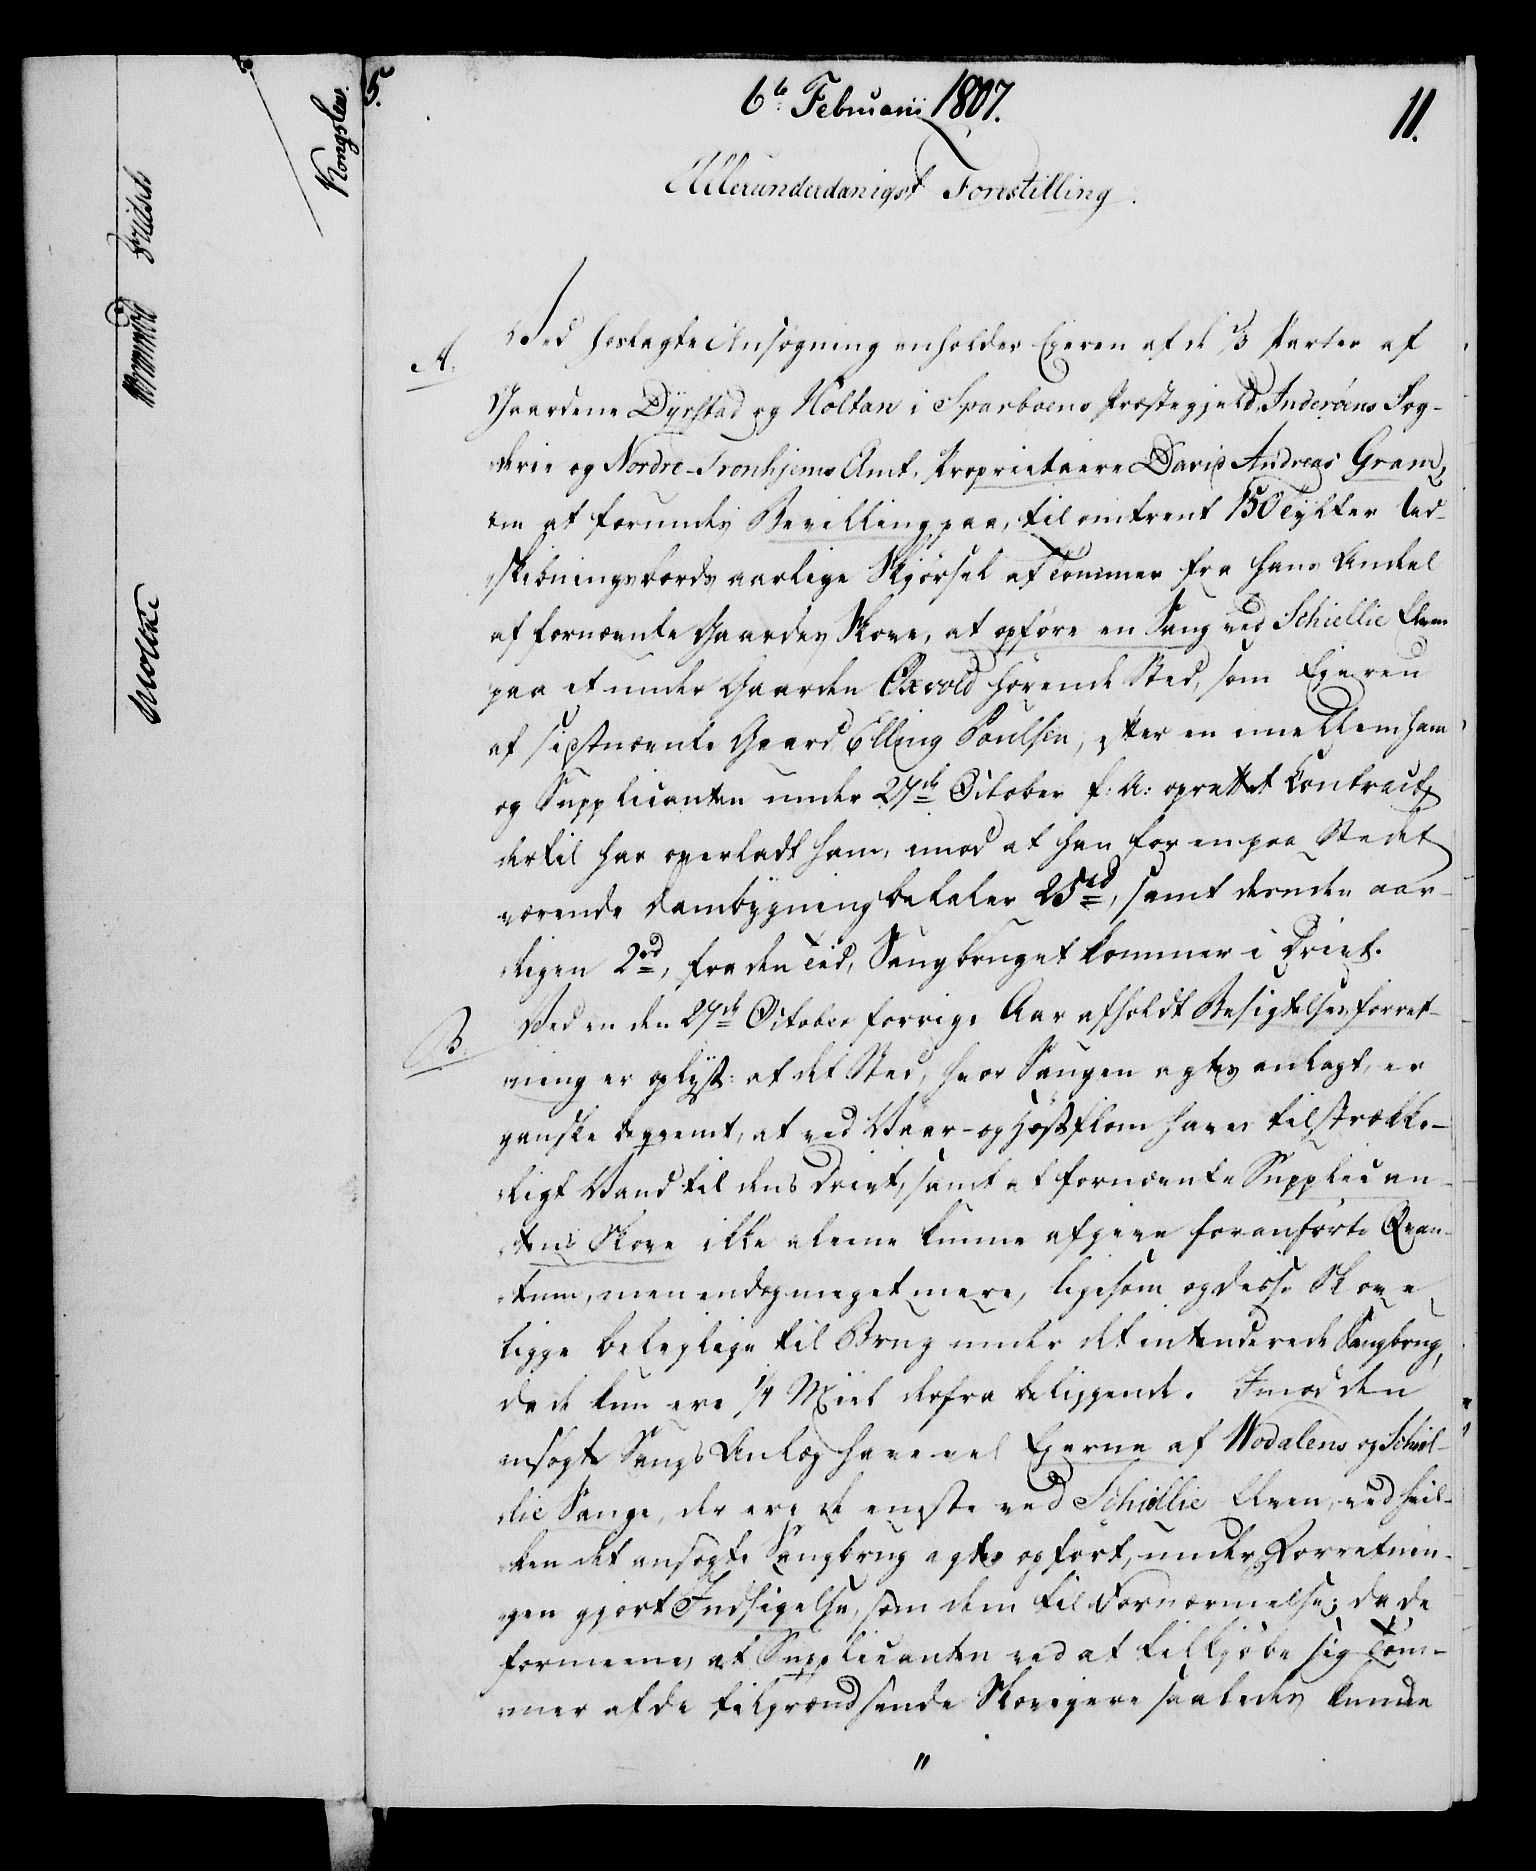 5.
6te Februarii 1807.
11.
Allerunderdanigst Forestilling.
A.
Ved hoslagte Ansøgning anholder Eieren af de 2/3 Parter af
Gaardene Dyrstad og Holtan i Sparboens Præstegjeld, Inderöens Fog-
derie og Nordre-Tronhjems Amt, Proprietaire David Andreas Gram,
om at forundes Bevilling paa, til omtrent 150 Tylter Ud-
skibningsbords aarlige Skjørsel af Tømmer fra hans Andeel
af fornævnte Gaardes Skove, at opføre en Saug ved Schiellie Elven
paa et under Gaarden Oxvold hørende Sted, som Eieren
af sidstnævnte Gaard Elling Poulsen, efter en imellem ham
og Supplicanten under 27de October f: A: oprettet Contract,
dertil har overladt ham, imod at han for en paa Stedet
værende Dambygning betaler 25rd, samt desuden aar-
ligen 2rd, fra den Tid, Saugbruget kommer i Drivt.
B.
Ved en den 27de October forrige Aar afholdt Besigtelsesforret-
ning er oplyst: at det Sted, hvor Saugen agtes anlagt, er
ganske beqvemt, at ved Vaar- og Høstflom haves tilstrække-
ligt Vand til dens Drivt, samt at fornævnte Supplican-
tens Skove ikke alene kunne afgive foranførte Qvan-
tum, men endog meget mere, ligesom og disse Skove
ligge beleylige til Brug under det intenderede Saugbrug,
da de kun ere 1/4 Miil derfra beliggende. Imod den
ansøgte Saugs Anlæg have vel Eierne af Wodalens og Schiel-
lie Sauge, der ere de eneste ved Schiellie Elven, ved hvil-
ken det ansøgte Saugbrug agtes opført, under Forretnin-
gen gjort Indsigelse, som dem til Fornærmelse; da de
formeene, at Supplicanten ved at tilkjøbe sig Tøm-
mer af de tilgrændsende Skoveiere saaledes kunde
"
Kongslew.
Moltke